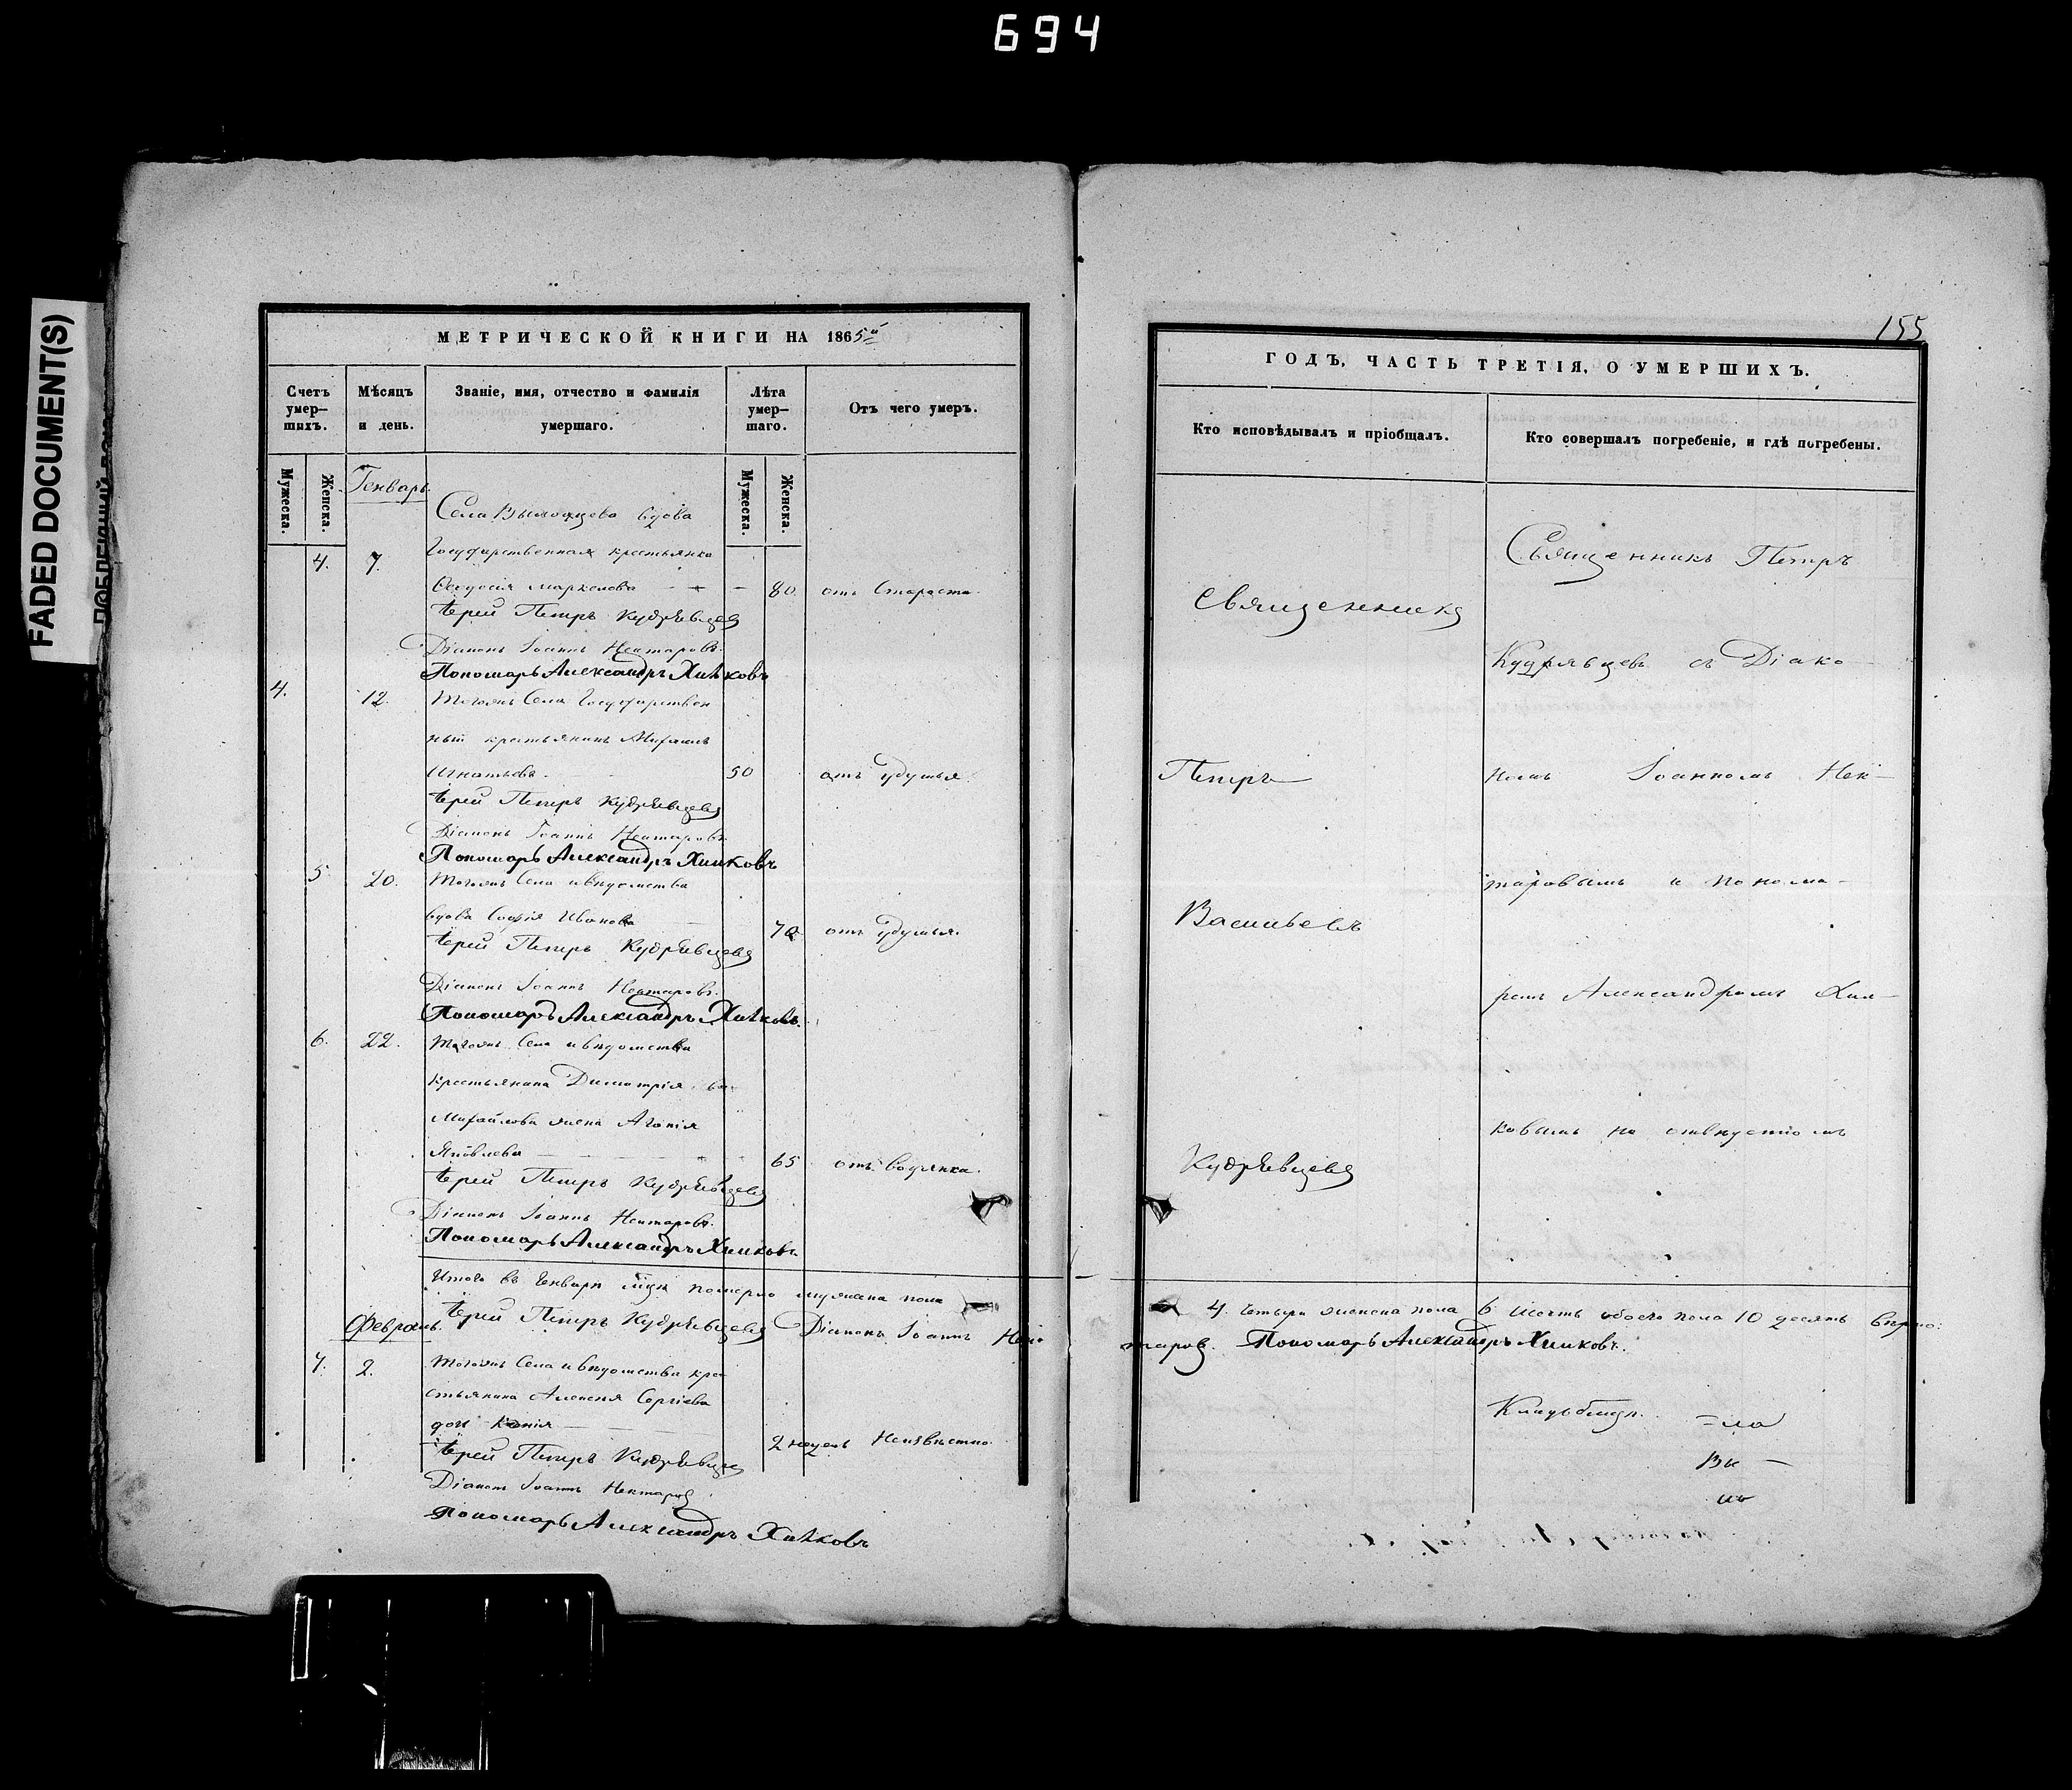 694
FADED DOCUMENT(S)
МЕТРИЧЕСКОЙ КНИГИ НА 1865й
Счетъ умер-шихъ.
Мѣсяцъ и день.
Званіе, имя, отчество и фамилія умершаго.
Лѣта умер-шаго.
Отъ чего умеръ.
Мужеска.
Женска.
Мужеска.
Женска.
Генварь.
Села вдова
4. 7. Государственная крестьянка
Ѳеодосія Маркелова 80. отъ Старости.
Іерей Петръ Кудрявцевъ
Діаконъ Іоаннъ Нектаровъ.
Пономарь Александръ Хилковъ
4. 12. Тогожъ Села Государствен
ный крестьянинъ Михаилъ
Игнатьевъ. 50 отъ удушья.
Іерей Петръ Кудрявцевъ
Діаконъ Іоаннъ Нектаровъ
Пономарь Александръ Хилковъ
5 20. Тогожъ Села и вѣдомства
вдова Софія Иванова 70 отъ удушья.
Іерей Петръ Кудрявцевъ
Діаконъ Іоаннъ Нектаровъ.
Пономарь Александръ Хилковъ.
6. 22. Тогожъ Села и вѣдомства
крестьянина Димитрія
Михайлова жена Агапія
Яковлева 65 отъ водянки.
Іерей Петръ Кудрявцевъ
Діаконъ Іоаннъ Нектаровъ.
Пономарь Александръ Хилковъ
Итого въ Генварѣ мцѣ померло мужеска пола
Іерей Петръ Кудрявцевъ Діаконъ Іоаннъ Нек
Февраль.
7. 2. Тогожъ Села и вѣдомства кре
стьянина Алексея Сергіева
дочь
2 недель Неизвѣстно.
Іерей Петръ Кудрявцевъ
Діаконъ Іоаннъ Нектаровъ
Пономарь Александръ Хилковъ
155
ГОДЪ, ЧАСТЬ ТРЕТІЯ, О УМЕРШИХЪ.
Кто исповѣдывалъ и пріобщалъ.
Кто совершалъ погребеніе, и гдѣ погребены.
Священникъ
Петръ
Васильевъ
Кудрявцевъ
Священникъ Петръ
Кудрявцевъ съ Діако
номъ Іоанномъ Нек-
таровымъ и понома-
ремъ Александромъ Хил-
ковымъ на отведенномъ
4. Четыре женска пола 6 шесть обоего пола 10 десять
таровъ. Пономарь Александръ Хилковъ.
Кладбищѣ.